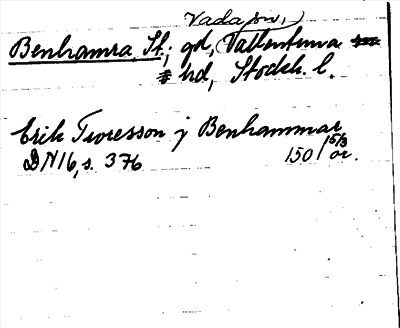 Vada sn,
Benhamra, St., gd, Vallentuna
hd, Stockh. l.
Erik Turesson j Benhammar
DN 16, s. 376 1501 15/3 or.